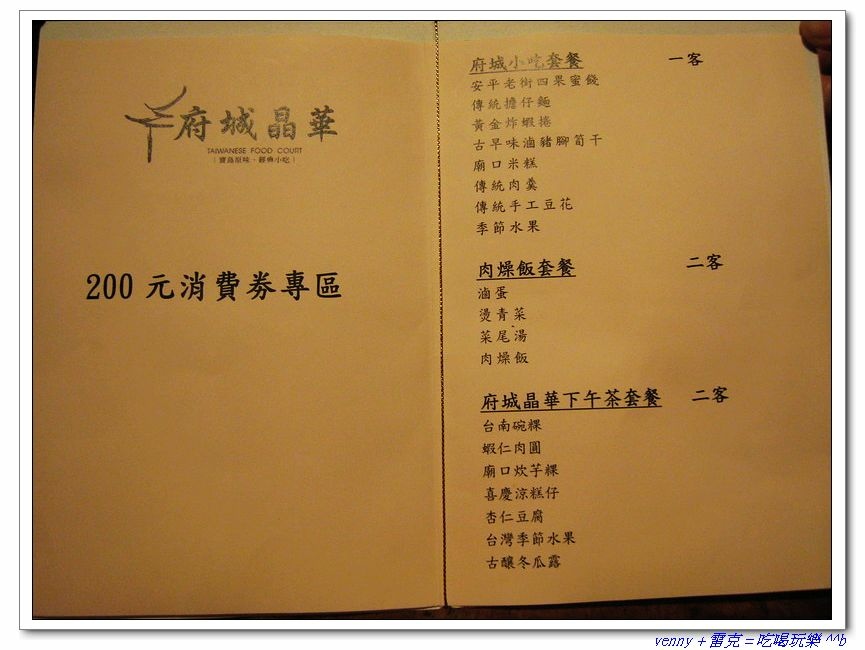 府城晶華
TAIWANESE FOOD COURT
〔寶島原味、經典小吃〕
200 元消費券專區
府城小吃套餐 一客
安平老街四果蜜餞
傳統擔仔麵
黃金炸蝦捲
古早味滷豬腳筍干
廟口米糕
傳統肉羹
傳統手工豆花
季節水果
肉燥飯套餐 二客
滷蛋
燙青菜
菜尾湯
肉燥飯
府城晶華下午茶套餐 二客
台南碗粿
蝦仁肉圓
廟口炊芋粿
喜慶涼糕仔
杏仁豆腐
台灣季節水果
古釀冬瓜露
venny + 雷克 = 吃喝玩樂 ^^b